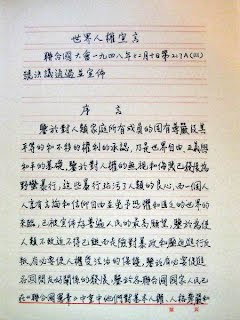 世界人權宣言
聯合國大會一九四八年十二月十日第217A(III)
號決議通過並宣佈
序言
鑒於對人類家庭所有成員的固有尊嚴及其
平等的和不移的權利的承認，乃是世界自由、正義與
和平的基礎，鑒於對人權的無視和侮蔑已發展為
野蠻暴行，這些暴行玷污了人類的良心，而一個人
人享有言論和信仰自由並免予恐懼和匱乏的世界的
來臨，已被宣佈為普遍人民的最高願望，鑒於為使
人類不致迫不得已鋌而走險對暴政和壓迫進行反
抗，有必要使人權受法治的保護，鑒於有必要促進
各國間友好關係的發展，鑒於各聯合國國家人民已
在《聯合國憲章》中重申他們對基本人權、人格尊嚴和